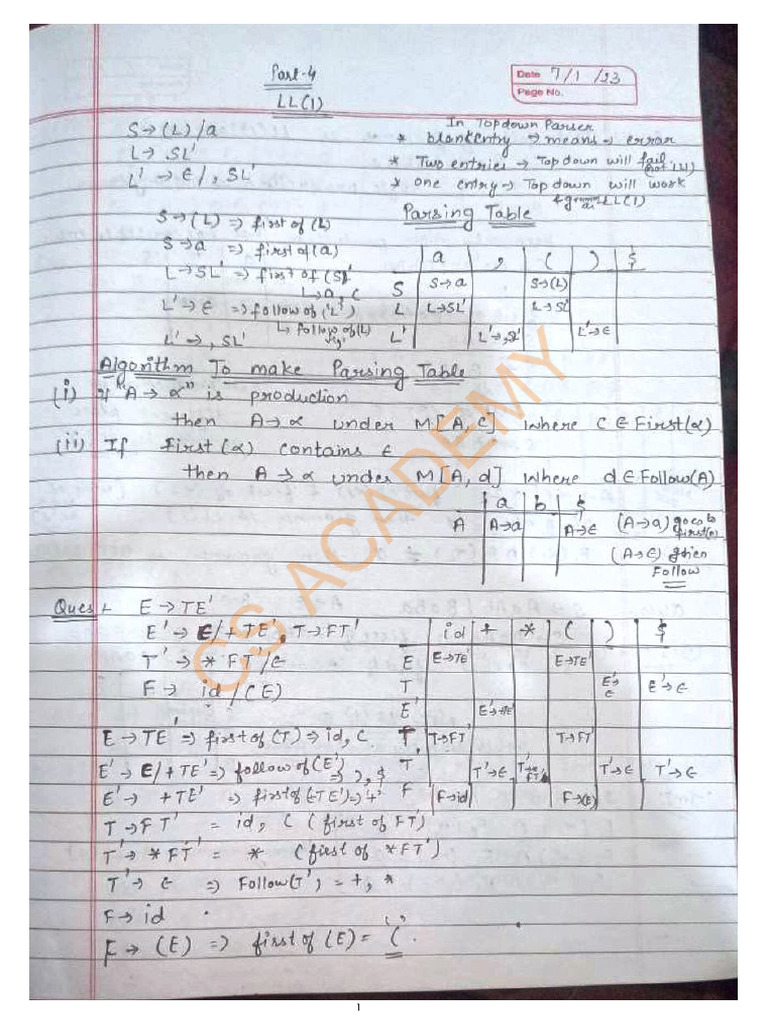 Part-4
Date 7/1/23
LL(1)
Page No.
S→(L)/a
L→ SL'
L' → ϵ/, SL'
In Topdown Parser
* blankentry → means → error
* Two entries → Topdown will fail (not LL1)
* one entry → Top down will work
& grammar LL(1)
S→(L) => first of (L)
S→a => first of(a)
L→SL' => first of (SL'
L→a, (
L'→ϵ => follow of('L')
↳ follow of(L)
L'→, SL'
Parsing Table
a , ( ) $
S S→a S→(L)
L L→SL' L→SL'
L' L'→,SL' L'→ϵ
Algorithm To make Parsing Table
(i) if "A→ α" is production
then A→α under M[A, C] Where C ∈ First(α)
(ii) If first(α) contains ϵ
then A→α under M[A, d] Where d ∈ Follow(A)
a b $
A A→a A→ϵ
(A→a) goes to first(a)
(A→ϵ) then
Follow
Ques:- E→TE'
E'→ ϵ/+TE', T→FT'
T'→ *FT'/ϵ
F→ id/(E)
id + * ( ) $
E E→TE' E→TE'
T E'→ϵ E'→ϵ
E' E'→+TE'
T T→FT' T→FT'
T T'→ϵ T'→*FT' T'→ϵ T'→ϵ
F F→id F→(E)
E→TE' => first of (T) => id, (
E'→ϵ/+TE' => follow of(E') => ), $
E'→ +TE' => first of(+TE')='+'
T→FT' = id, ( ( first of FT')
T'→*FT' = * (first of *FT')
T'→ϵ => Follow(T') = +, *
F→id
F→ (E) => first of (E) = '('
CS ACADEMY
1